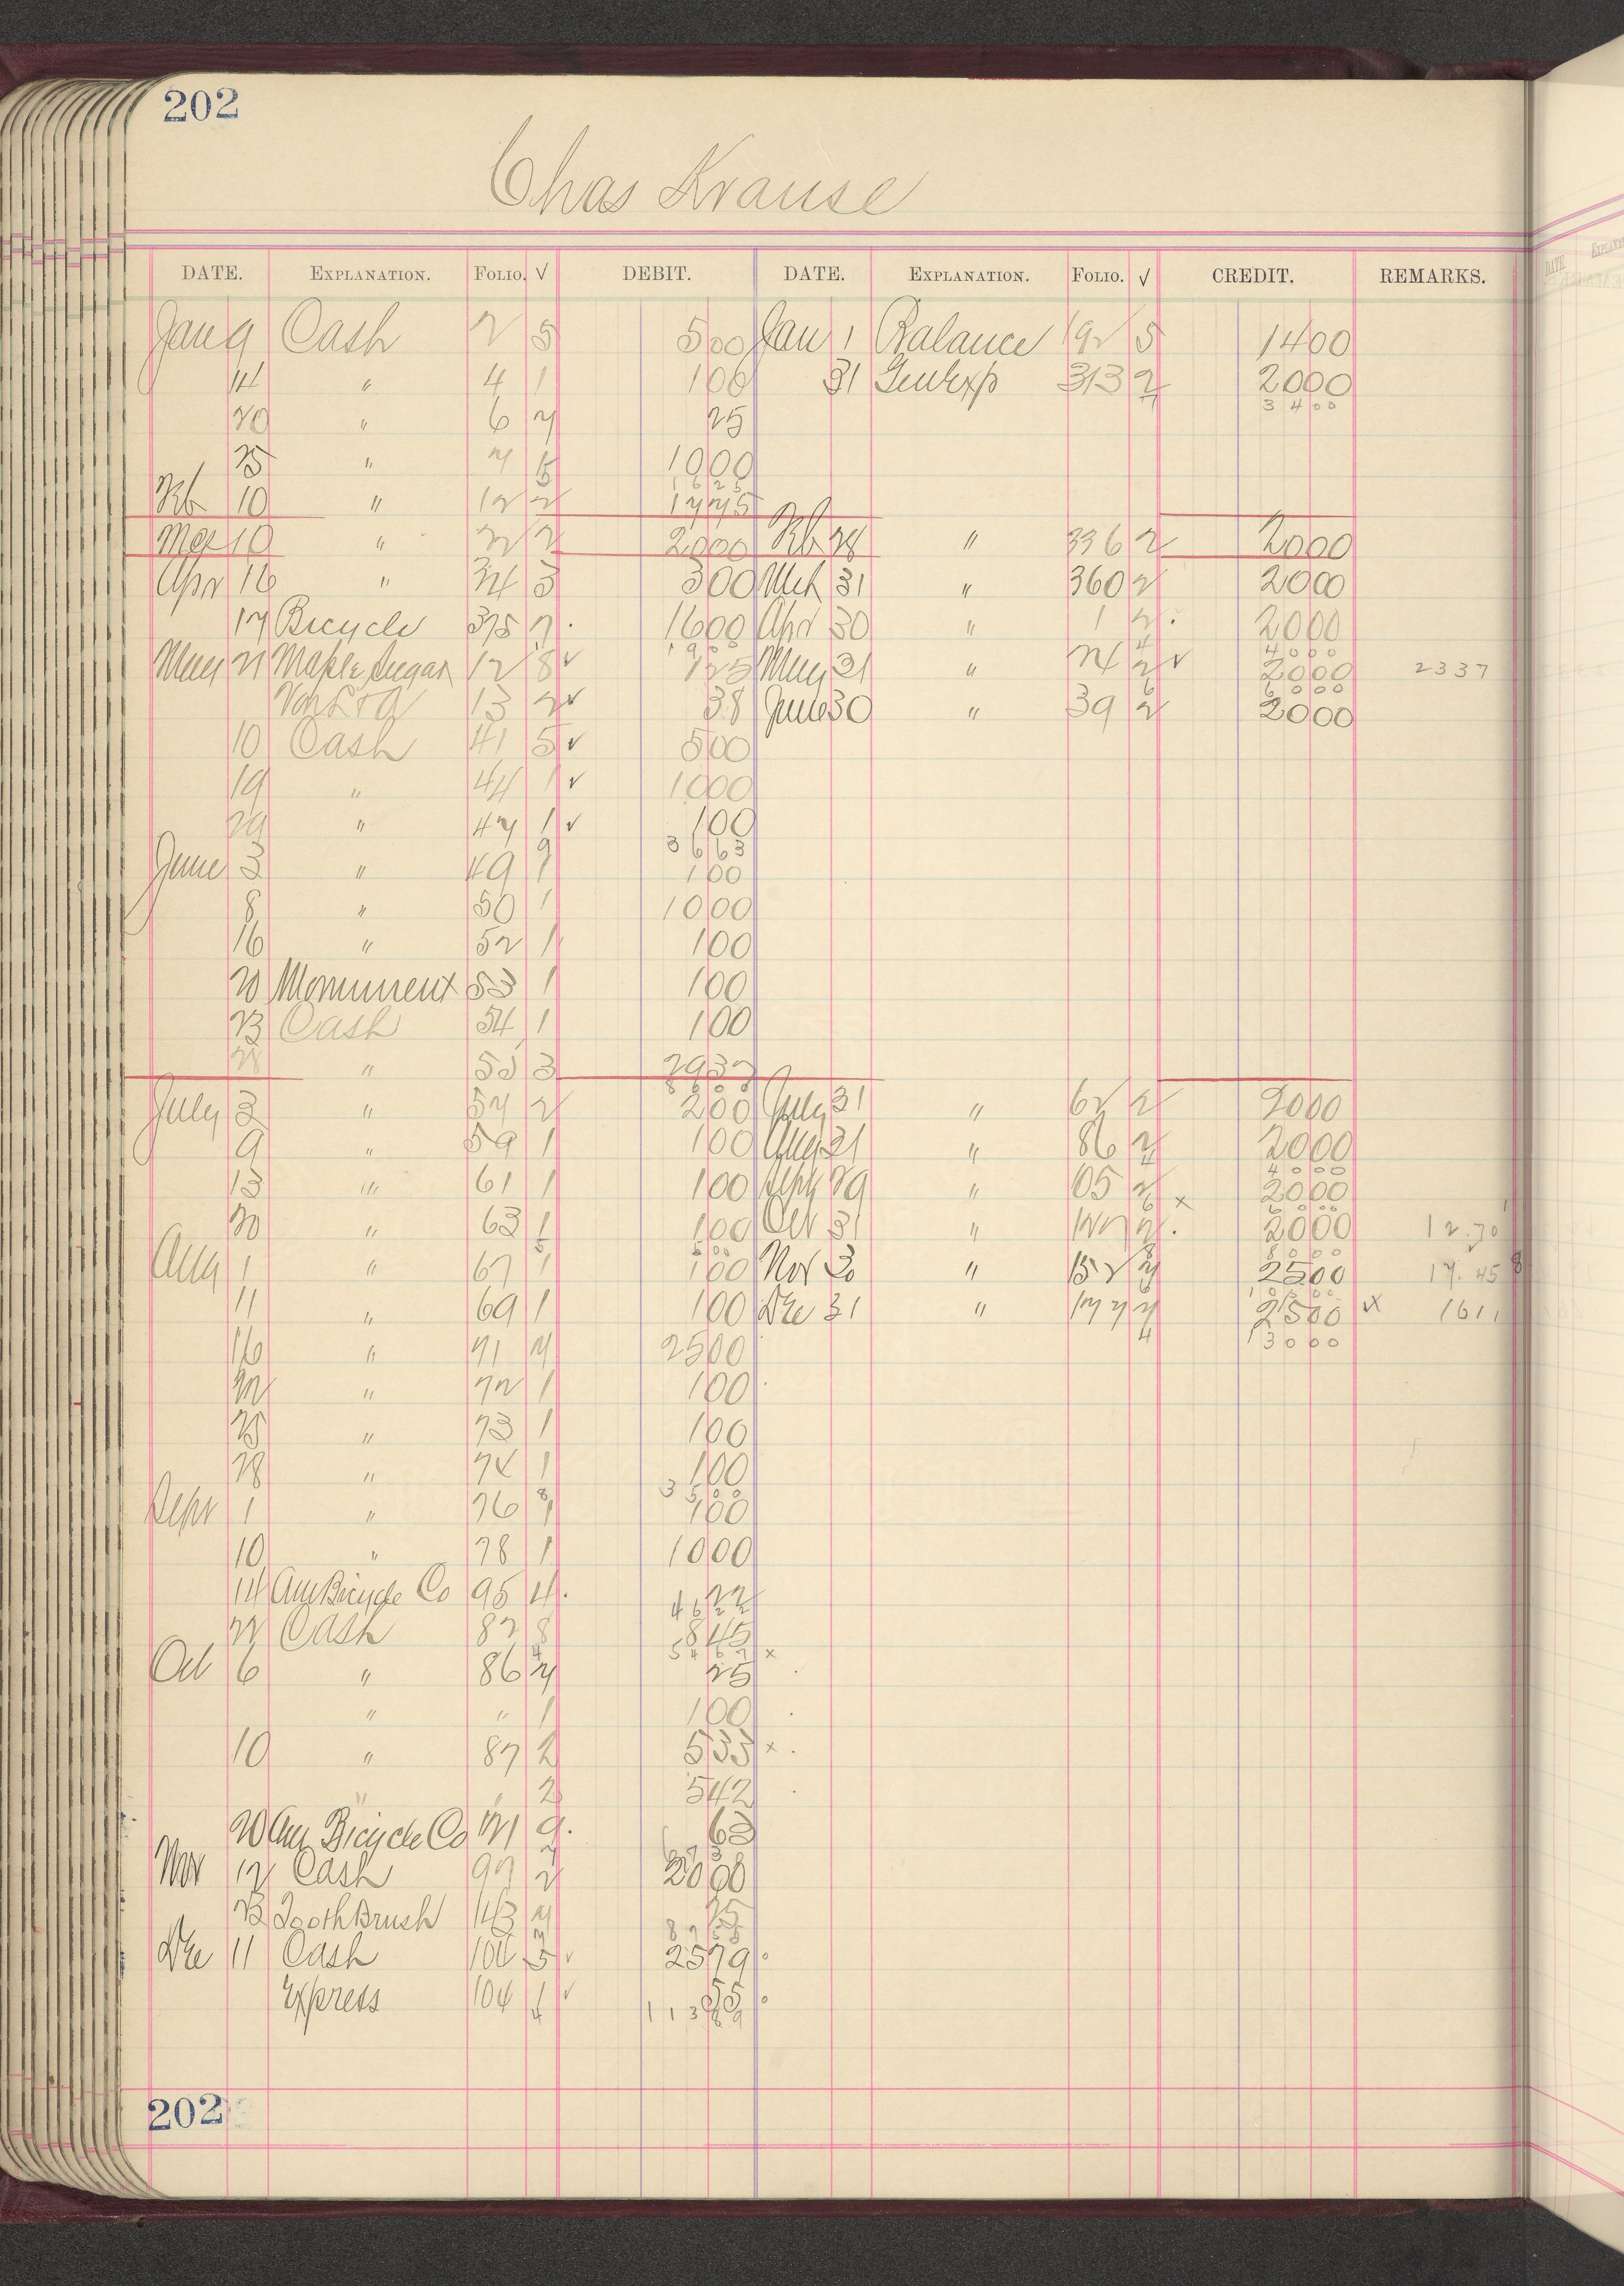 202
Chas Krause
DATE. EXPLANATION. FOLIO. √ DEBIT. DATE. EXPLANATION. FOLIO. √ CREDIT. REMARKS.
Jan 9 Cash 2 5 500 Jan 1 Balance 192 5 1400
14 " 4 1 100 31 Gen Exp 313 2 2000
3400
20 " 6 7 25
25 " 7 5 1000
1625
Feb 10 " 12 2 1775
Mar 10 " 22 2 2000 Feb 28 " 336 2 2000
Apr 16 " 34 3 300 Mch 31 " 360 2 2000
17 Bicycle 375 7 . 1600 Apr 30 " 1 2 . 2000
1900 4 4000
May 21 Maple Sugar 12 8 ✓ 125 May 31 " 24 2 ✓ 2000 2337
6 6000
13 2 ✓ 38 June 30 " 39 2 2000
10 Cash 41 5 ✓ 500
19 " 44 1 ✓ 1000
29 " 47 1 ✓ 100
9 3663
June 3 " 49 1 100
8 " 50 1 1000
16 " 52 1 100
20 Monument 53 1 100
23 Cash 54 1 100
28 " 55 3 2937
July 3 " 57 2 200 July 31 " 62 2 2000
9 " 59 1 100 Aug 31 " 86 2 2000
4000
13 " 61 1 100 Sept 29 " 105 2 x 2000
6 6000
20 " 63 1 100 Oct 31 " 127 2 . 2000 12.70
5 500 8 8000
Aug 1 " 67 1 100 Nov 30 " 152 7 2500 17.45 8
10500
11 " 69 1 100 Dec 31 " 177 7 2500 ✓x 1611
4 13000
16 " 71 7 2500
22 " 72 1 100
25 " 73 1 100
28 " 74 1 100
8 3500
Sept 1 " 76 1 100
10 " 78 1 1000
14 Am Bicycle Co 95 4 . 22
4622
22 Cash 82 8 845
4 5467 x
Oct 6 " 86 7 25 .
" " 1 100 .
10 " 87 2 533 x .
" " 2 542 .
20 Am Bicycle Co 121 9 . 63
Nov 12 Cash 97 2 2000
23 Tooth Brush 143 7 25
8755
Dec 11 Cash 104 5 ✓ 2579 o
Express 104 1 ✓ 55 o
4 11389
202